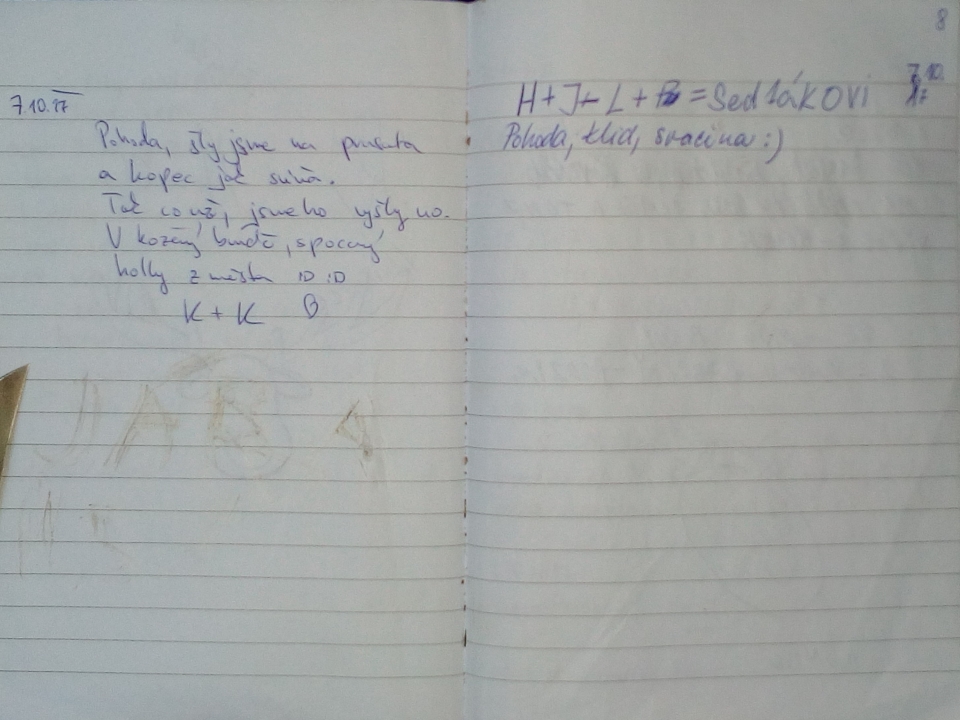 7.10.17
Pohoda, šly jsme na
a kopec jak sviňa.
Tak což, jsme ho vyšly no.
V kožený bundě, spocený
holky z města :D :D
K + K
8
7.10.
17
H + J + L + = Sedlákovi
Pohoda, klid, svačina :)